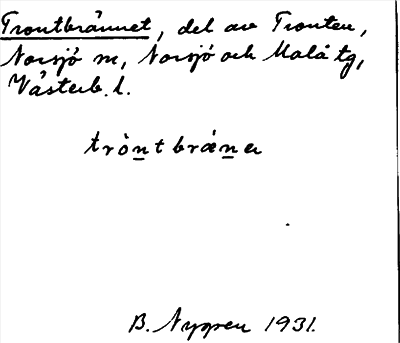 Trontbrännet, del av Tronten,
Norsjö sn, Norsjö och Malå tg,
Västerb. l.
tròntbrænər
B. Nygren 1931.